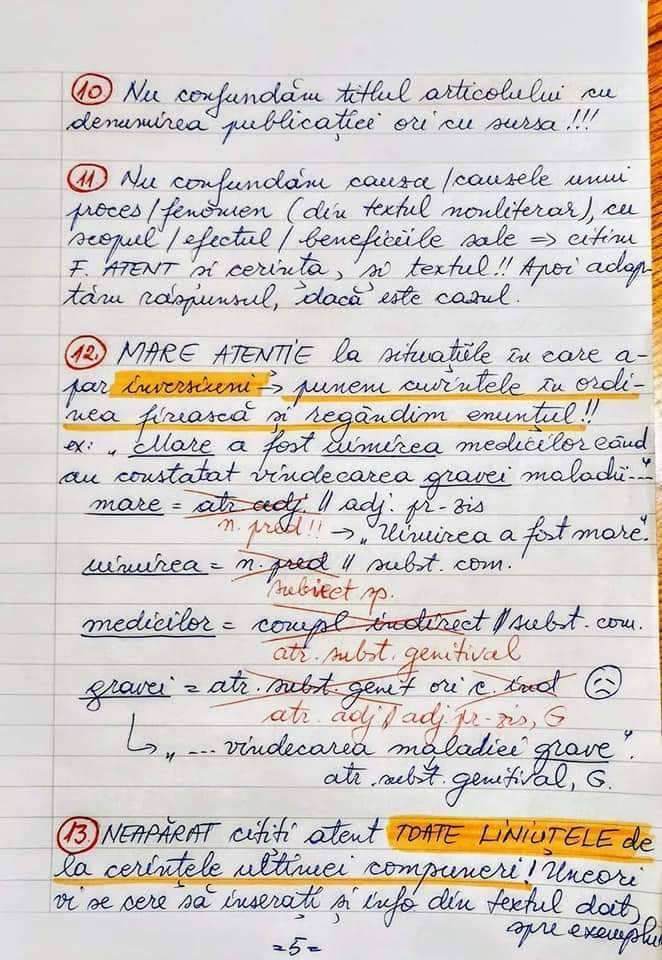 10 Nu confundăm titlul articolului cu
denumirea publicației ori cu sursa!!!
11 Nu confundăm cauza/causele unui
proces/fenomen (din textul nonliterar), cu
scopul/efectul/beneficiile sale => citim
F. ATENT și cerința, și textul!! Apoi adap-
tăm răspunsul, dacă este cazul.
12. MARE ATENȚIE la situațiile în care a-
par inversiuni → punem cuvintele în ordi-
nea firească și regândim enunțul!!
ex: „Mare a fost uimirea medicilor când
au constatat vindecarea gravei maladii---"
mare = atr. adj. || adj. pr-zis
n. pred!! → „Uimirea a fost mare".
uimirea = n. pred || subst. com.
subiect sp.
medicilor = compl indirect || subst. com.
atr. subst. genitival
gravei = atr. subst. genit ori c. ind
atr. adj || adj pr-zis, G
↳ „ --- vindecarea maladiei grave".
atr. subst. genitival, G.
13 NEAPĂRAT citiți atent TOATE LINIUȚELE de
la cerințele ultimei compuneri! Uneori
vi se cere să inserați și info din textul dat,
spre exemplu
=5=